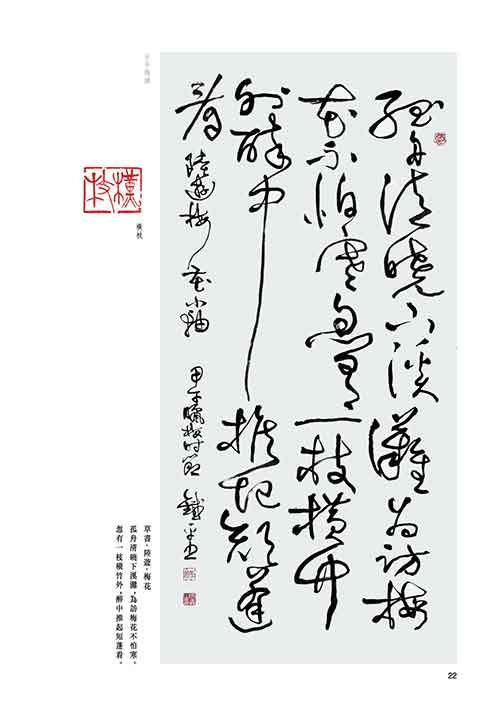 孤舟清曉下溪灘為訪梅
花不怕寒忽有一枝橫竹
外醉中推起短蓬
看 陸遊梅花小軸 甲午臘梅時節
橫枝
橫枝
草書·陸遊·梅花
孤舟清曉下溪灘，為訪梅花不怕寒。
忽有一枝橫竹外，醉中推起短蓬看。
22